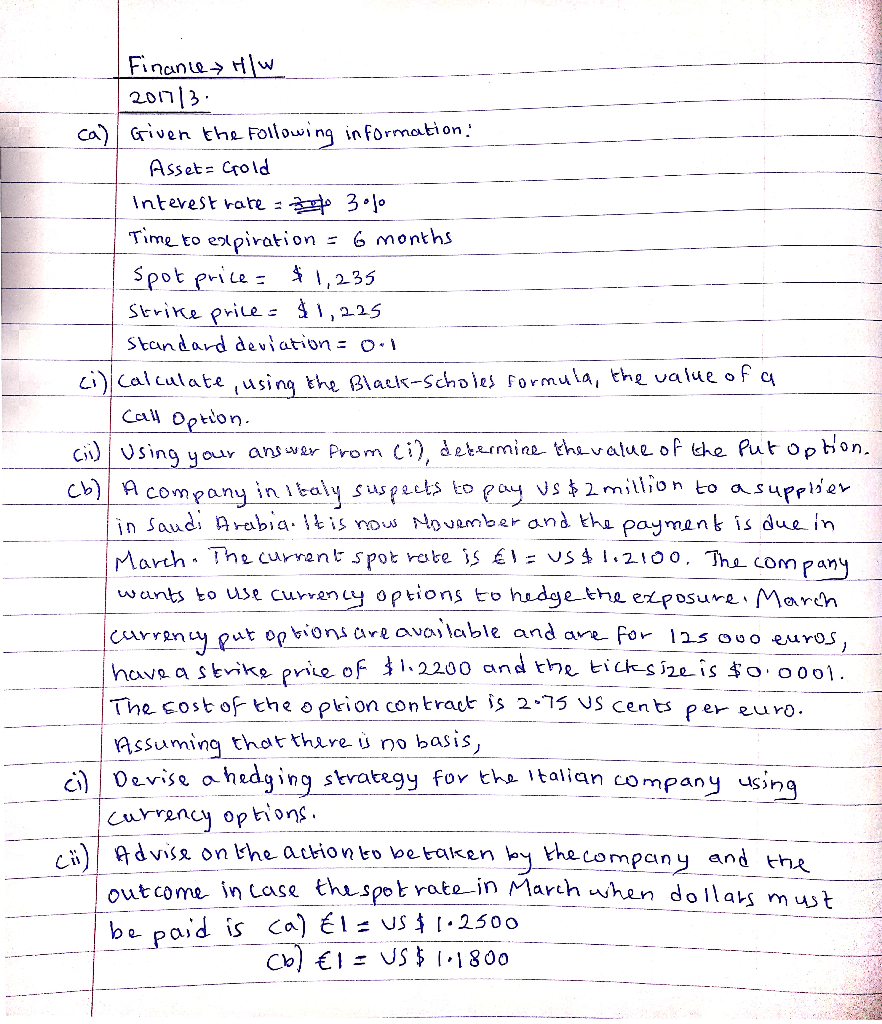 Finance → H/W
2017/3.
(a) Given the Following information:
Asset = Gold
Interest rate = 3%
Time to expiration = 6 months
Spot price = $ 1,235
Strike price = $1,225
Standard deviation = 0.1
(i) Calculate, using the Black-Scholes formula, the value of a
Call Option.
(ii) Using your answer from (i), determine the value of the Put option.
(b) A company in italy suspects to pay US $ 2 million to a supplier
in Saudi Arabia. It is now November and the payment is due in
March. The current spot rate is €1 = US $ 1.2100. The company
wants to use currency options to hedge the exposure. March
currency put options are available and are for 125 000 euros,
have a strike price of $1.2200 and the tick size is $0.0001.
The cost of the option contract is 2.75 US cents per euro.
Assuming that there is no basis,
(i) Devise a hedging strategy for the Italian company using
currency options.
(ii) Advise on the action to be taken by the company and the
outcome in case the spot rate in March when dollars must
be paid is (a) €1 = US $ 1.2500
(b) €1 = US $ 1.1800